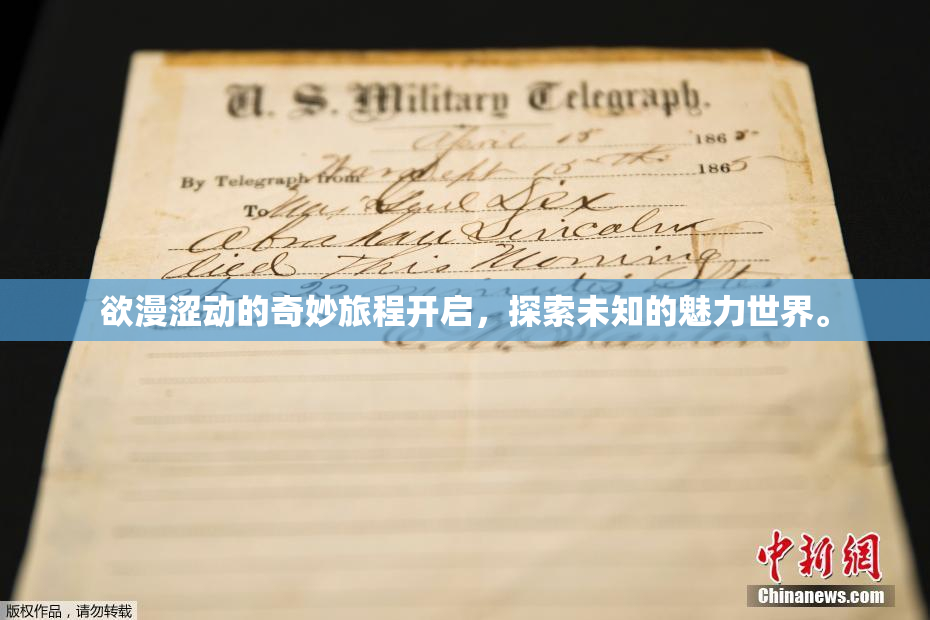 U. S. Military Telegraph.
April 15 1865
By Telegraph from War Dept 15th 1865
To Maj Genl Dix
Abraham Lincoln
died This Morning
at 22 minutes after
欲漫涩动的奇妙旅程开启，探索未知的魅力世界。
中新網
Chinanews.com
版权作品，请勿转载